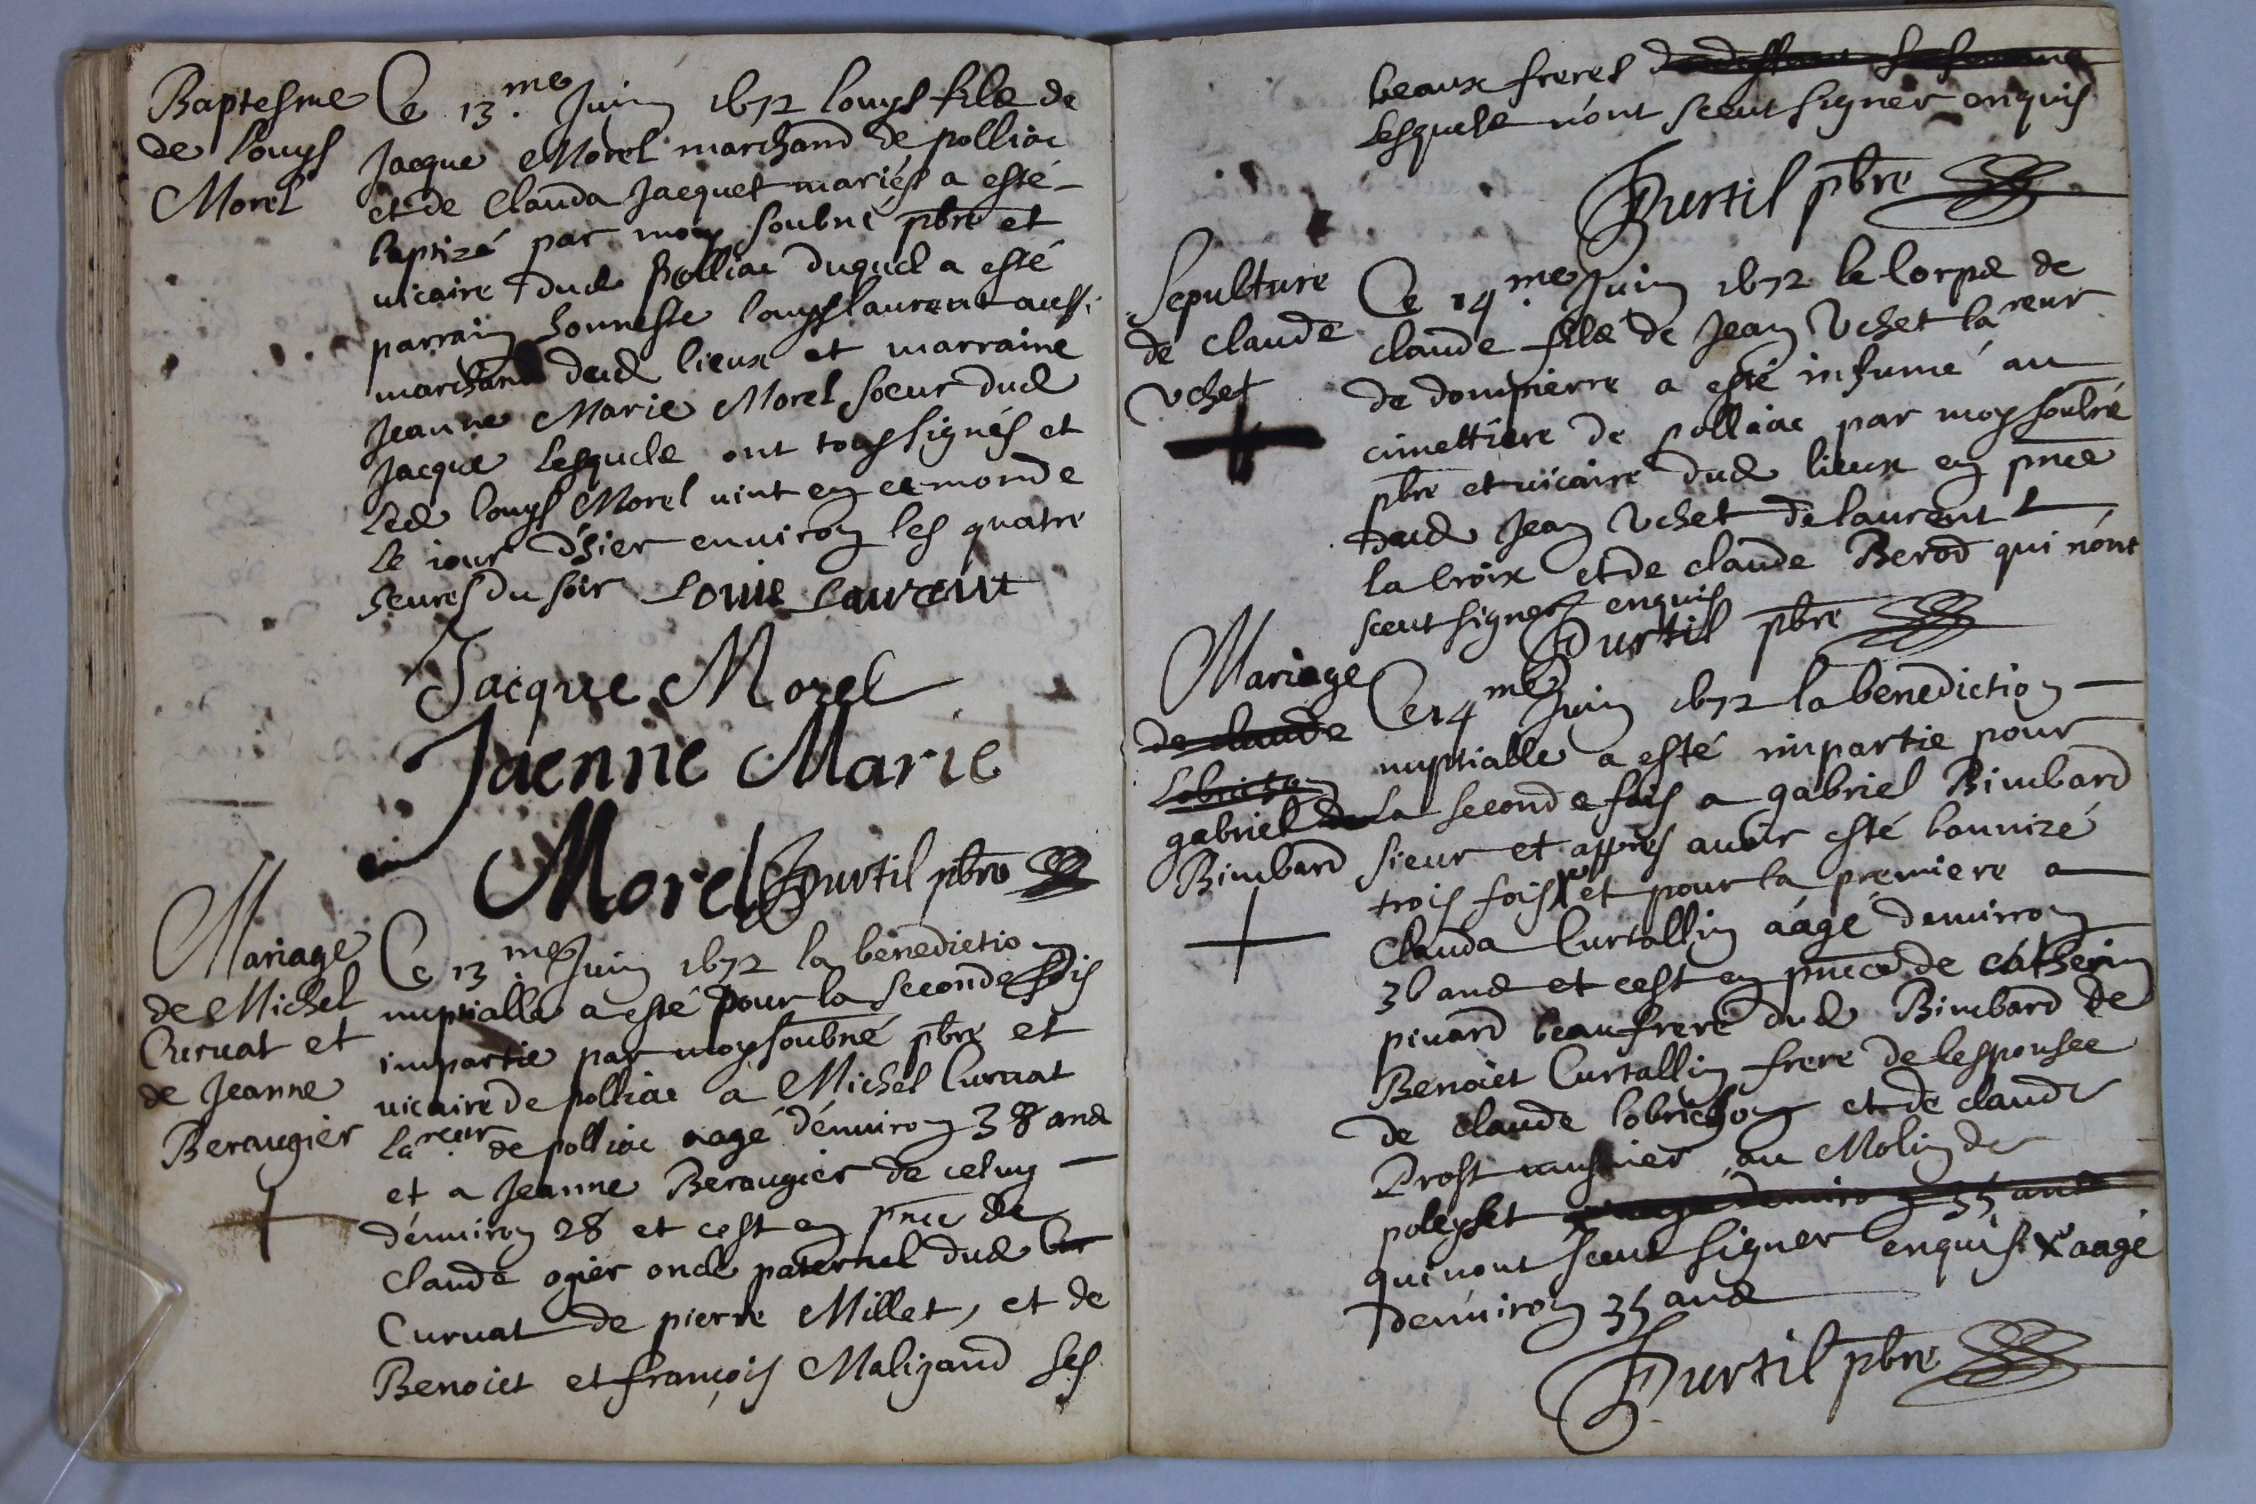 Baptesme
de Louys
Morel
Ce 13.me Juin 1672 Louys fils de
Jacque Morel marchand de polliac
et de Clauda Jacquet mariés a esté
baptizé par moy soubné pbre et
vicaire dud polliac duquel a esté
parrain honneste Louys Laurent aussi
marchand dud lieux et marraine
Jeanne Marie Morel soeur dud
Jacque lesquels ont tous signés et
led Louys Morel vint en ce monde
le jour d'hier environ les quatre
heures du soir Louis Laurent
Jacque Morel
Jaenne Marie
Morel Purtil pbre
Mariage
de Michel
Curvat et
de Jeanne
Beraugier
Ce 13.me Juin 1672 la benediction
nuptialle a esté pour la seconde fois
impartie par moy soubné pbre et
vicaire de polliac a Michel Curvat
la.reur de polliac aagé d'environ 38 ans
et a Jeanne Beraugier de celuy
d'environ 28 et cest en pnce de
Claude ogier oncle paternel dud
Curvat de pierre Millet, et de
Benoict et françois Malizand ses
beaux freres
lesquels n'ont sceut signer enquis
Purtil pbre
Sepulture
de claude
Vchet
Ce 14.me Juin 1672 le Corps de
claude fils de Jean Vchet la.reur
de dompierre a esté inhumé au
cimettiere de polliac par moy soubné
pbre et vicaire dud lieux en pnce
dud Jean Vchet de laurent
la Croix et de claude Berod qui n'ont
sceut signer enquis
Purtil pbre
Mariage
de claude
Lobrichon
gabriel
Bimbard
Ce 14.me Juin 1672 la benediction
nuptialle a esté impartie pour
la seconde fois a gabriel Bimbard
sieur et appres avoir esté bannizé
trois fois x et pour la premiere a
Clauda Curtallin aagé denviron
30 ans et cest en pnce de catherin
pivard beaufrere dud Bimbard de
Benoict Curtallin frere de lespousee
de claude lobrichon et de claude
Prost musnier au Molin de
poleyset x aagé denviron 35 ans
qui nont sceut signer enquis. x aagé
denviron 35 ans
Purtil pbre